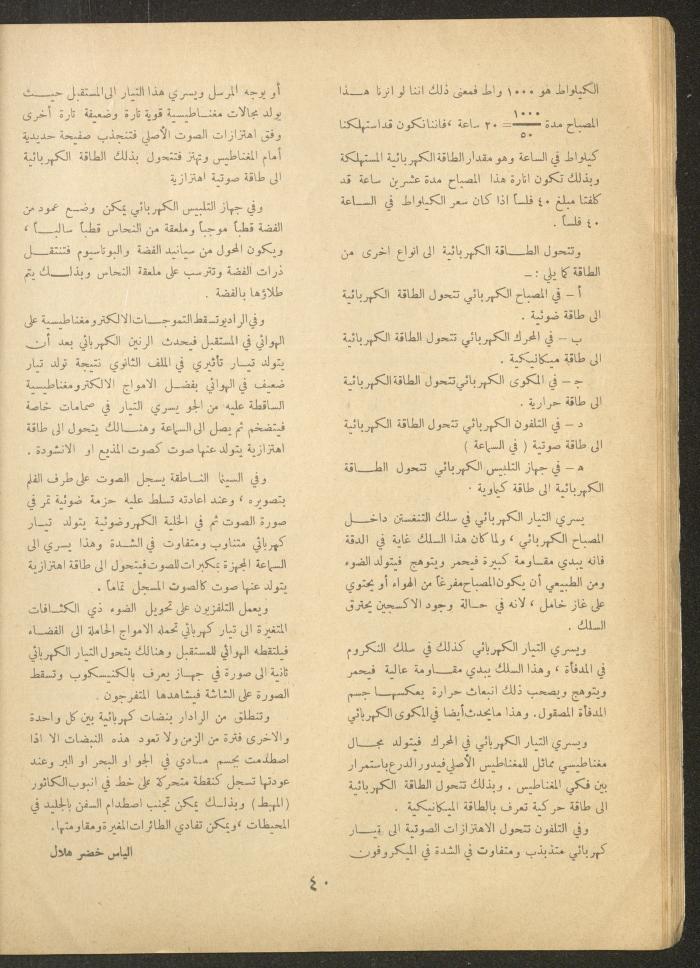 الكيلواط هو ١٠٠٠ واط فمعنى ذلك اننا لو انرنا هــذا
المصباح مدة ١٠٠٠/٥٠ = ٢٠ ساعة ، فاننا نكون قد استهلكنا
كيلواط في الساعة وهو مقدار الطاقة الكهربائية المستهلكة
وبذلك تكون انارة هذا المصباح مدة عشرين ساعة قد
كلفتنا مبلغ ٤٠ فلساً اذا كان سعر الكيلواط في الساعة
٤٠ فلساً .
وتتحول الطــاقة الكهربائية الى انواع اخرى من
الطاقة كما يلي : ــ
أ – في المصباح الكهربائي تتحول الطاقة الكهربائية
الى طاقة ضوئية .
ب – في المحرك الكهربائي تتحول الطاقة الكهربائية
الى طاقة ميكانيكية .
ج – في المكوى الكهربائي تتحول الطاقة الكهربائية
الى طاقة حرارية .
د – في التلفون الكهربائي تتحول الطاقة الكهربائية
الى طاقة صوتية ( في السماعة )
ه – في جهاز التلبيس الكهربائي تتحول الطــاقة
الكهربائية الى طاقة كيماوية .
يسري التيار الكهربائي في سلك التنغستن داخــل
المصباح الكهربائي ، ولما كان هذا السلك غاية في الدقة
فانه يبدي مقــاومة كبيرة فيحمر ويتوهج فيتولد الضوء
ومن الطبيعي أن يكون المصباح مفرغاً من الهواء أو يحتوي
على غاز خامل ، لانه في حــالة وجود الاكسجين يحترق
السلك .
ويسري التيار الكهربائي كذلك في سلك النكروم
في المدفأة ، وهذا السلك يبدي مقــاومة عالية فيحمر
ويتوهج ويصحب ذلك انبعاث حرارة يعكسهــا جسم
المدفأة المصقول. وهذا ما يحدث أيضا في المكوى الكهربائي
ويسري التيار الكهربائي في المحرك فيتولد مجــال
مغناطيسي مماثل للمغناطيس الأصلي فيدور الدرع باستمرار
بين فكي المغناطيس . وبذلك تتحول الطاقة الكهربائية
الى طاقة حركية تعرف بالطاقة الميكانيكية .
وفي التلفون تتحول الاهتزازات الصوتية الى تيــار
كهربائي متذبذب ومتفاوت في الشدة في الميكروفون
أو يوجه المرسل ويسري هذا التيار الى المستقبل حيــث
يولد مجالات مغنــاطيسية قوية تارة وضعيفة تارة أخرى
وفق اهتزازات الصوت الأصلي فتنجذب صفيحة حديدية
أمام المغناطيس وتهتز فتتحول بذلك الطاقة الكهربائية
الى طاقة صوتية اهتزازية
وفي جهاز التلبيس الكهربائي يمكن وضــع عمود من
الفضة قطباً موجباً وملعقة من النحاس قطباً سالبــاً ،
ويكون المحول من سيانيد الفضة والبوتاسيوم فتنتقــل
ذرات الفضة وتترسب على ملعقة النحاس وبذلــك يتم
طلاؤها بالفضة .
وفي الراديو تسقط التموجــات الالكترومغناطيسية على
الهوائي في المستقبل فيحدث الرنين الكهربائي بعد أن
يتولد تيــار تأثيري في الملف الثانوي نتيجة تولد تيار
ضعيف في الهوائي بفضــل الامواج الالكترومغناطيسية
الساقطة عليه من الجو يسري التيار في صمامات خاصة
فيتضخم ثم يصل الى السماعة وهنــالك يتحول الى طاقة
اهتزازية يتولد عنها صوت كصوت المذيع او الانشودة .
وفي السينما النــاطقة يسجل الصوت على طرف الفلم
بتصويره ، وعند اعادته تسلط عليه حزمة ضوئية تمر في
صورة الصوت ثم في الخلية الكهروضوئية يتولد تيــار
كهربائي متناوب ومتفاوت في الشــدة وهذا يسري الى
السماعة المجهزة بمكبرات للصوت فيتحول الى طاقة اهتزازية
يتولد عنها صوت كالصوت المسجل تماماً .
ويعمل التلفزيون على تحويل الضوء ذي الكثــافات
المتغيرة الى تيار كهربائي تحمله الامواج الحاملة الى الفضــاء
فيلتقطه الهوائي للمستقبل وهنالك يتحول التيار الكهربائي
ثانية الى صورة في جهــاز يعرف بالكنيسكوب وتسقط
الصورة على الشاشة فيشاهدها المتفرجون .
وتنطلق من الرادار بنضات كهربائية بين كل واحدة
والاخرى فترة من الزمن ولا تعود هذه النبضات الا اذا
اصطدمت بجسم مــادي في الجو او البحر او البر وعند
عودتها تسجل كنقطة متحركة على خط في انبوب الكاثور
(المهبط) وبذلــك يمكن تجنب اصطدام السفن بالجليد في
المحيطات ، ويمكن تفادي الطائرات المغيرة ومقاومتها.
الياس خضر هلال
٤٠